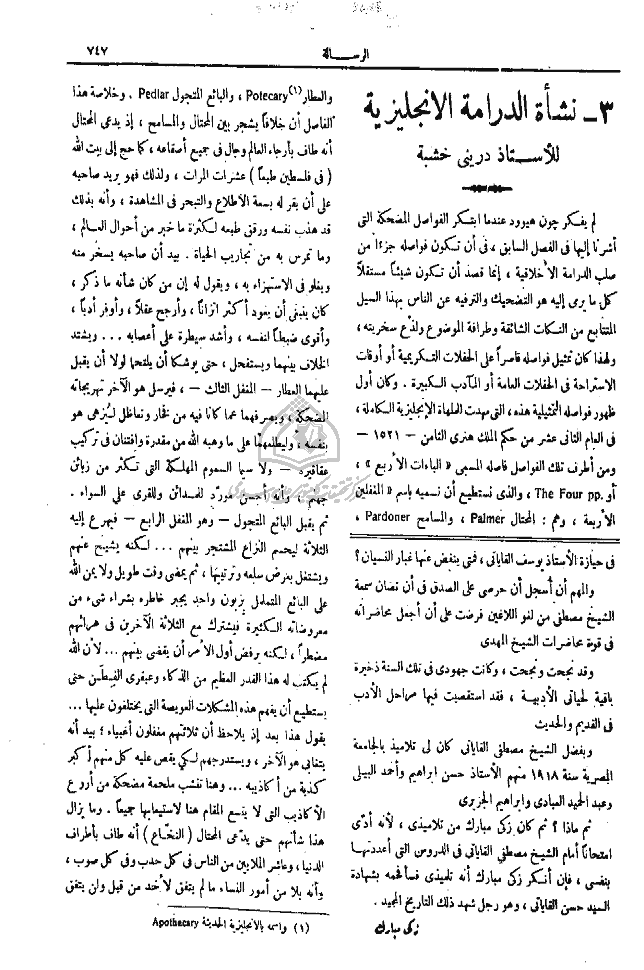 الرسالة
٧٤٧
٣ــ نشأة الدرامة الانجليزية
للأستاذ دريني خشبة
لم يفكر چون هيوود عندما ابتكر الفواصل المضحكة التي
أشرنا إليها في الفصل السابق ، في أن تكون فواصله جزءاً من
صلب الدرامة الأخلاقية ، إنما قصد أن تكون شيئاً مستقلاً
كل ما يرى إليه هو التضحيك والترفيه عن الناس بهذا السيل
المتتابع من النكات الشائقة وطرافة الموضوع ولذع سخريته ،
ولهذا كان تمثيل فواصله قاصراً على الحفلات التكريمية أو أوقات
الاستراحة في الحفلات العامة أو المآدب الكبيرة . وكان أول
ظهور فواصله التمثيلية هذه ، التي مهدت للملهاة الإنجليزية الكاملة ،
في العام الثاني عشر من حكم الملك هنري الثامن – ١٥٢١ –
ومن أطرف تلك الفواصل فاصله المسمى « الباءات الأربع » ،
أو The Four pp. والذي نستطيع أن نسميه باسم « المغفلين
الأربعة » وهم : المحتال Palmer ، والمسامح Pardoner ،
في حيازة الأستاذ يوسف القاياتي ، فمتى ينفض عنها غبار النسيان ؟
والمهم أن أسجل أن حرصي على الصدق في أن تصان سمعة
الشيخ مصطفى من لغو اللاغين فرضت على أن أجعل محاضراته
في قوة محاضرات الشيخ المهدي
وقد نجحت ونجحت ، وكانت جهودي في تلك السنة ذخيرة
باقية لحياتي الأدبية ، فقد استقصيت فيها مراحل الأدب
في القديم والحديث
وبفضل الشيخ مصطفى القاياتي كان لي تلاميذ بالجامعة
المصرية سنة ١٩١٨ منهم الأستاذ حسن ابراهيم وأحمد البيلي
وعبد الحميد العبادي وابراهيم الجزيري
ثم ماذا ؟ ثم كان زكي مبارك من تلاميذي ، لأنه أدى
امتحاناً أمام الشيخ مصطفى القاياتي في الدروس التي أعددتها
بنفسي ، فإن أنكر زكي مبارك أنه تلميذي فسألقمه بشهادة
السيد حسن القاياتي ، وهو رجل شهد ذلك التاريخ المجيد .
زكي مبارك
والعطار(١) Potecary ، والبائع المتجول Pedlar . وخلاصة هذا
الفاصل أن خلافاً يشجر بين المحتال والمسامح ، إذ يدعى المحتال
أنه طاف بأرجاء العالم وجال في جميع أصقاعه ، كما حج إلى بيت الله
( في فلسطين طبعاً ) عشرات المرات ، ولذلك فهو يريد صاحبه
على أن يقر له بسعة الاطلاع والتبحر في المشاهدة ، وأنه بذلك
قد هذب نفسه ورقق طبعه لكثرة ما خبر من أحوال العالم ،
وما تمرس به من تجاريب الحياة . بيد أن صاحبه يسخر منه
ويغلو في الاستهزاء به ، ويقول له إن من كان شأنه ما ذكر ،
كان ينبغي أن يعود أكثر اتزاناً ، وأرجح عقلاً ، وأوفر أدباً ،
وأقوى ضبطاً لنفسه ، وأشد سيطرة على أعصابه ... ويشتد
الخلاف بينهما ويستفحل ، حتى يوشكا أن يلتحما لولا أن يقبل
عليهما العطار – المغفل الثالث – فيرسل هو الآخر تهريجاته
المضحكة ، ويصرفهما عما كانا فيه من فخار وتعاظل ليزهى هو
بنفسه ، وليطلعهما على ما وهبه الله من مقدرة وافتنان في تركيب
عقاقيره – ولا سيما السموم المهلكة التي تكثر من زبائن
جهنم ، وأنه أحسن مورّد للمدائن وللقرى على السواء .
ثم يقبل البائع المتجول – وهو المغفل الرابع – فيهرع إليه
الثلاثة ليحسم النزاع المشتجر بينهم ... لكنه يشيح عنهم
ويشتغل بعرض سلعه وترتيبها ، ثم يمضى وقت طويل ولا يمن الله
على البائع المتململ بزبون واحد يجبر خاطره بشراء شيء من
معروضاته الكثيرة فيشترك مع الثلاثة الآخرين في هرائهم
مضطراً ، لكنه يرفض أول الأمر أن يقضى بينهم ... لأن الله
لم يكتب له هذا القدر العظيم من الذكاء وعبقرى الفيطن حتى
يستطيع أن يفهم هذه المشكلات العويصة التي يختلفون عليها ...
يقول هذا بعد إذ يلاحظ أن ثلاثتهم مغفلون أغبياء ؛ بيد أنه
يتغابى هو الآخر ، ويستدرجهم لكي يقص عليه كل منهم أكبر
كذبة من أكاذيبه ... وهنا تنشب ملحمة مضحكة من أروع
الأكاذيب التي لا يتسع المقام هنا لاستيعابها جميعاً . وما يزال
هذا شأنهم حتى يدعى المحتال ( النخاع ) أنه طاف بأطراف
الدنيا ، وعاشر الملايين من الناس في كل حدب وفي كل صوب ،
وأنه بلا من أمور النساء ما لم يتفق لأحد من قبل ولن يتفق
(١) واسمه بالانجليزية الحديثة Apothecary